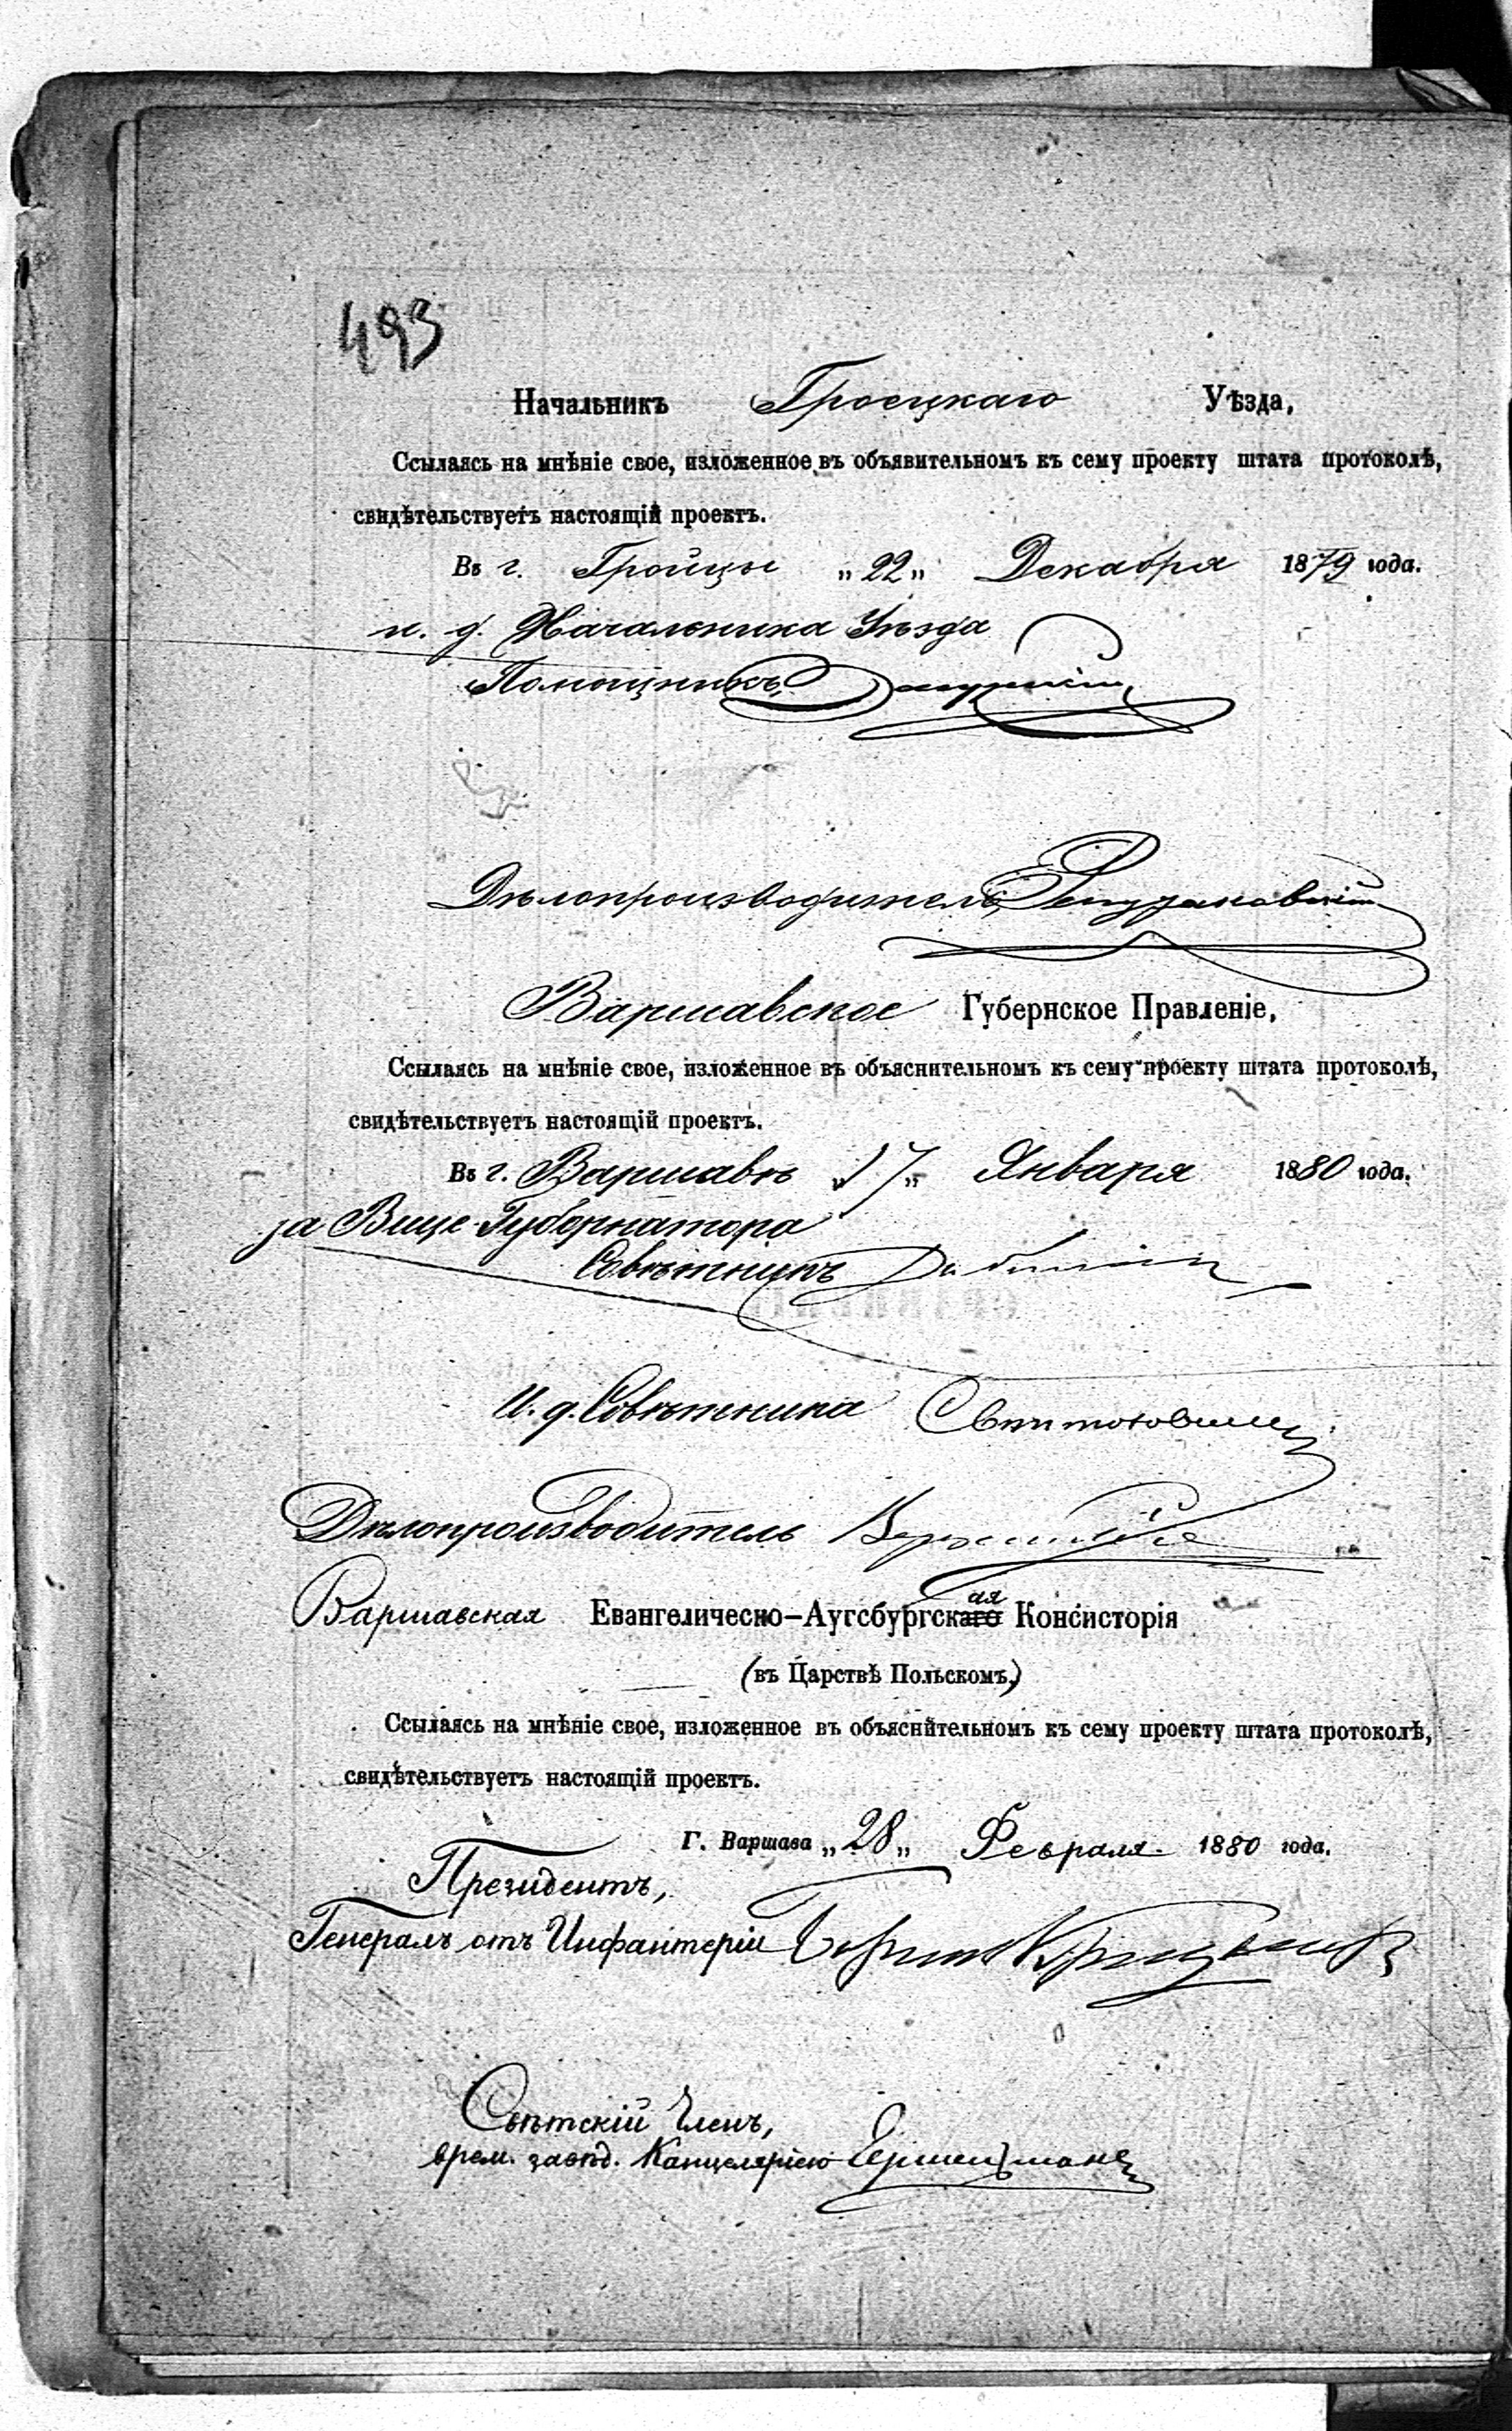 493
Начальникъ Гроецкаго Уѣзда,
Ссылаясь на мнѣніе свое, изложенное въ объявительномъ къ сему проекту штата протоколѣ,
свидѣтельствуетъ настоящій проектъ.
Въ г. Гройцы „22„ Декабря 1879 года.
и. д. Начальника Уѣзда
Помощникъ
Дѣлопроизводитель
Варшавское Губернское Правленіе,
Ссылаясь на мнѣніе свое, изложенное въ объяснительномъ къ сему проекту штата протоколѣ,
свидѣтельствуетъ настоящій проектъ.
Въ г. Варшавѣ „17„ Января 1880 года.
за Вице Губернатора
Совѣтникъ
И. д. Совѣтника
Дѣлопроизводитель
Варшавская Евангелическо-Аугсбургская Консисторія
(въ Царствѣ Польскомъ,)
Ссылаясь на мнѣніе свое, изложенное въ объяснительномъ къ сему проекту штата протоколѣ,
свидѣтельствуетъ настоящій проектъ.
Г. Варшава „28„ Февраля 1880 года.
Президентъ,
Генералъ отъ Инфантеріи
Свѣтскій Членъ,
врем. завѣд. Канцеляріею